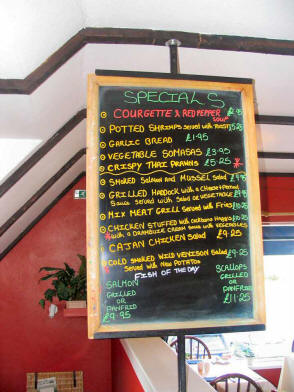 SPECIALS
COURGETTE & RED PEPPER
SOUP £2.95
POTTED SHRIMPS served with TOAST 5.25
GARLIC BREAD £1.95
VEGETABLE SOMASAS £3.95
CRISPY THAI PRAWNS £5.25
SMOKED Salmon AND MUSSEL Salad
GRILLED HADDOCK with a CHEESE &
Sauce Served with Salad OR VEGETABLE
MIX MEAT GRILL Served with Fries
CHICKEN STUFFED with
with a DRAMBUIE CREAM Sauce with VEGETABLES
CAJAN CHICKEN Salad £9.25
COLD SMOKED WILD VENISON Salad £9.25
Served with NEW POTATOES
FISH OF THE DAY
SALMON
GRILLED
OR
PANFRIED
£9.95
SCALLOPS
GRILLED
OR
PANFRIED
£11.25